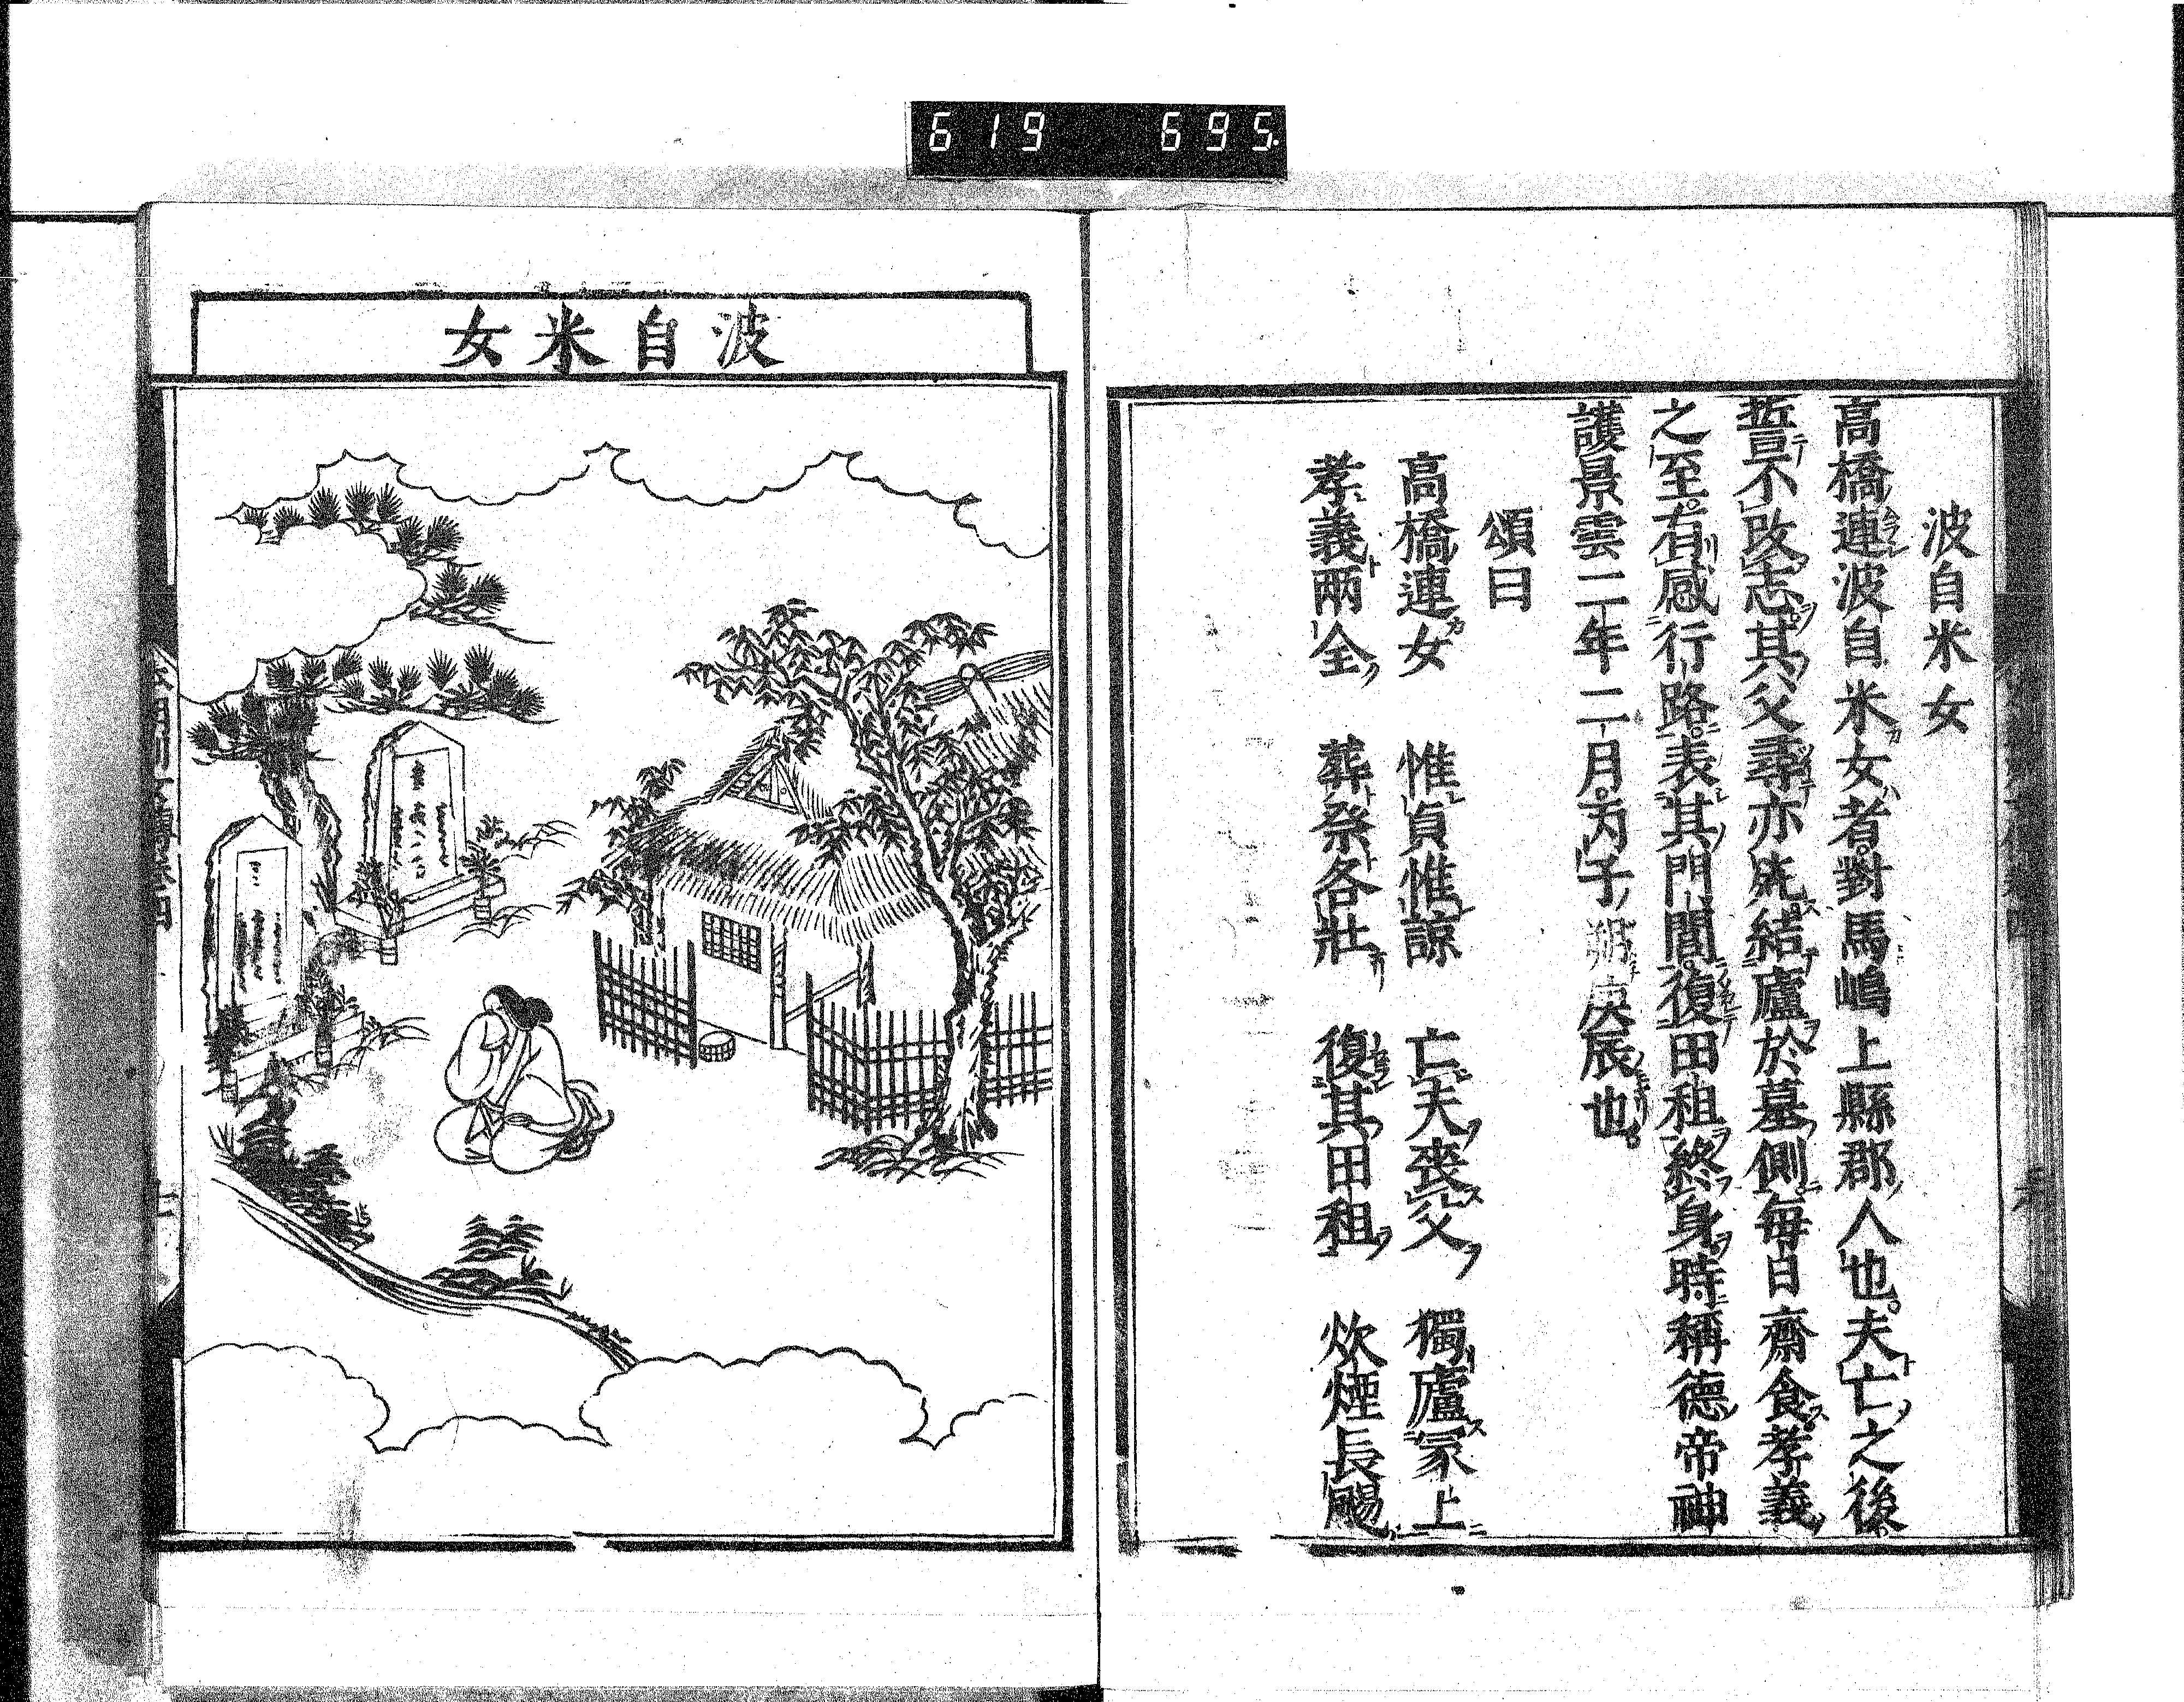 619 695.
波自米女
高橋連波自米女者對馬嶋上縣郡人也。夫亡之後
誓不改志其父尋亦死結廬於墓側毎日齋食孝義
之至。有感行路。表其門閭。復田租終身時稱德帝神
護景雲二年二月丙子朔庚辰也。
頌曰
高橋連女 惟貞惟諒 亡夫喪父 獨廬冢上
孝義兩全 葬祭各壯 復其田租 炊煙長颺
波自米女